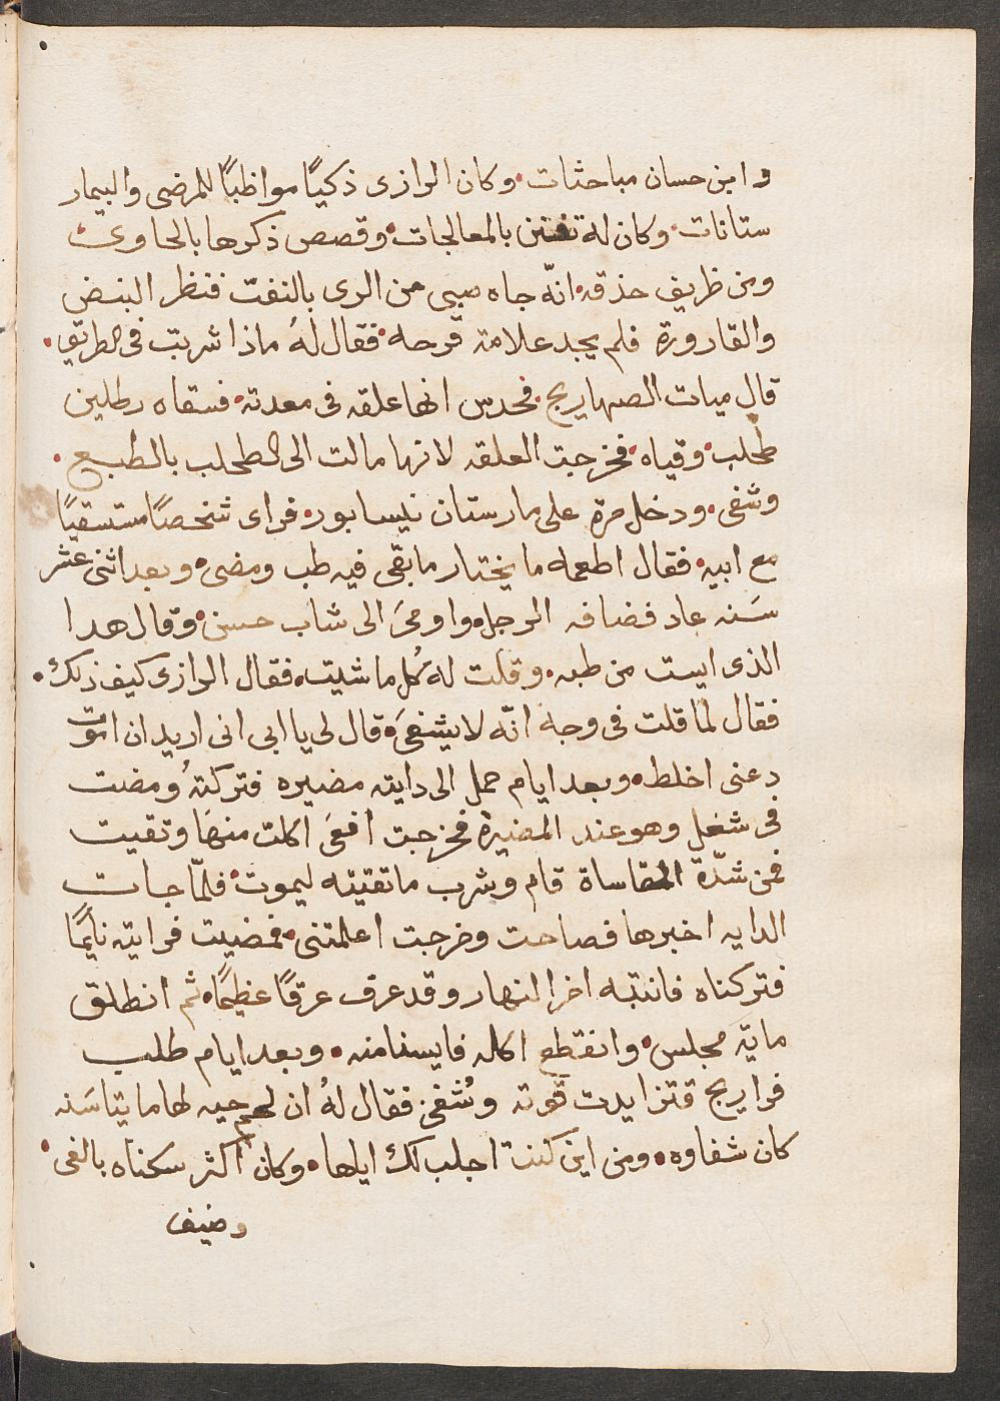 وابن حسان مباحثات. وكان الرازى ذكيًا مواظبًا للمرضى والبيمار
ستانات. وكان له تفنن بالمعالجات. وقصص ذكرها بالحاوى
ومن ظريف حذقه. انّه جاه صبى من الرى بالنفث فنظر النبض
والقارورة فلم يجد علامة قرحه. فقال لهُ ماذا شربت فى الطريق.
قال ميات الصهاريج. فحدس انها علقه فى معدته. فسقاه رطلين
طحلب. وقياه. فخرجت العلقه لانها مالت الى الطحلب بالطبع.
وشفى. ودخل مرة على مارستان نيسابور. فراى شخصًا مستسقيًا
مع ابيه. فقال اطعمه ما يختار ما بقى فيه طب ومضى. وبعد اثنى عشر
سَنه عاد فضافه الرجل. واومىَ الى شاب حسن. وقال هدا
الذى ايست من طبه. وقلت له كُل ما شيت. فقال الرازى كيف ذلك.
فقال لما قلت فى وجهه انّه لا يشفىَ. قال لى يا ابى انى اريد ان اموت
دعنى اخلط. وبعد ايام حمل الى دايته مضيره فتركتهُ ومضت
فى شغل وهو عند المضيرة فخرجت افعىَ اكلت منهَا وتقيت
فمن شدّة المقاساة قام وشرب ما تقيته ليموت. فلمّا جات
الدايه اخبرها فصاحت وخرجت اعلمتنى. فمضيت فرايته نايمًا
فتركناه فانتبه اخر النهار وقد عرق عرقًا عظيمًا. ثم انطلق
ماية مجلس. وانقطع اكله فايسنا منه. وبعد ايام طلب
فراريج فتزايدت قوته وشُفى. فقال لهُ ان لحم حيه لها مايتا سَنه
كان شفاوه. ومن اين كنت اجلب لك اياها. وكان اكثر سكناه بالفى.
وضيف